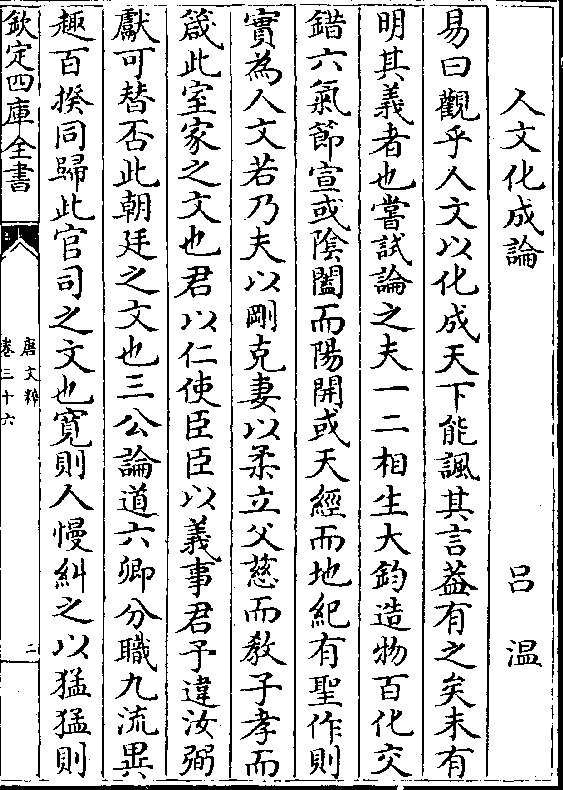 人文化成論　　　　　　　　　　吕温
易曰觀乎人文以化成天下能諷其言葢有之矣未有
明其義者也嘗試論之夫一二相生大鈞造物百化交
錯六氣節宣或陰闔而陽開或天經而地紀有聖作則
實為人文若乃夫以剛克妻以柔立父慈而教子孝而
箴此室家之文也君以仁使臣臣以義事君予違汝弼
獻可替否此朝廷之文也三公論道六卿分職九流異
趣百揆同歸此官司之文也寛則人慢糾之以猛猛則
欽定四庫全書
唐文粹
卷三十六
二